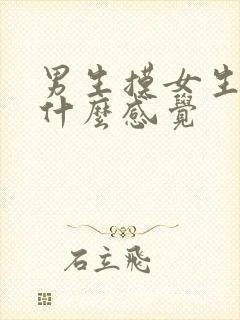 男生摸女生
什麼感覺
石立飛